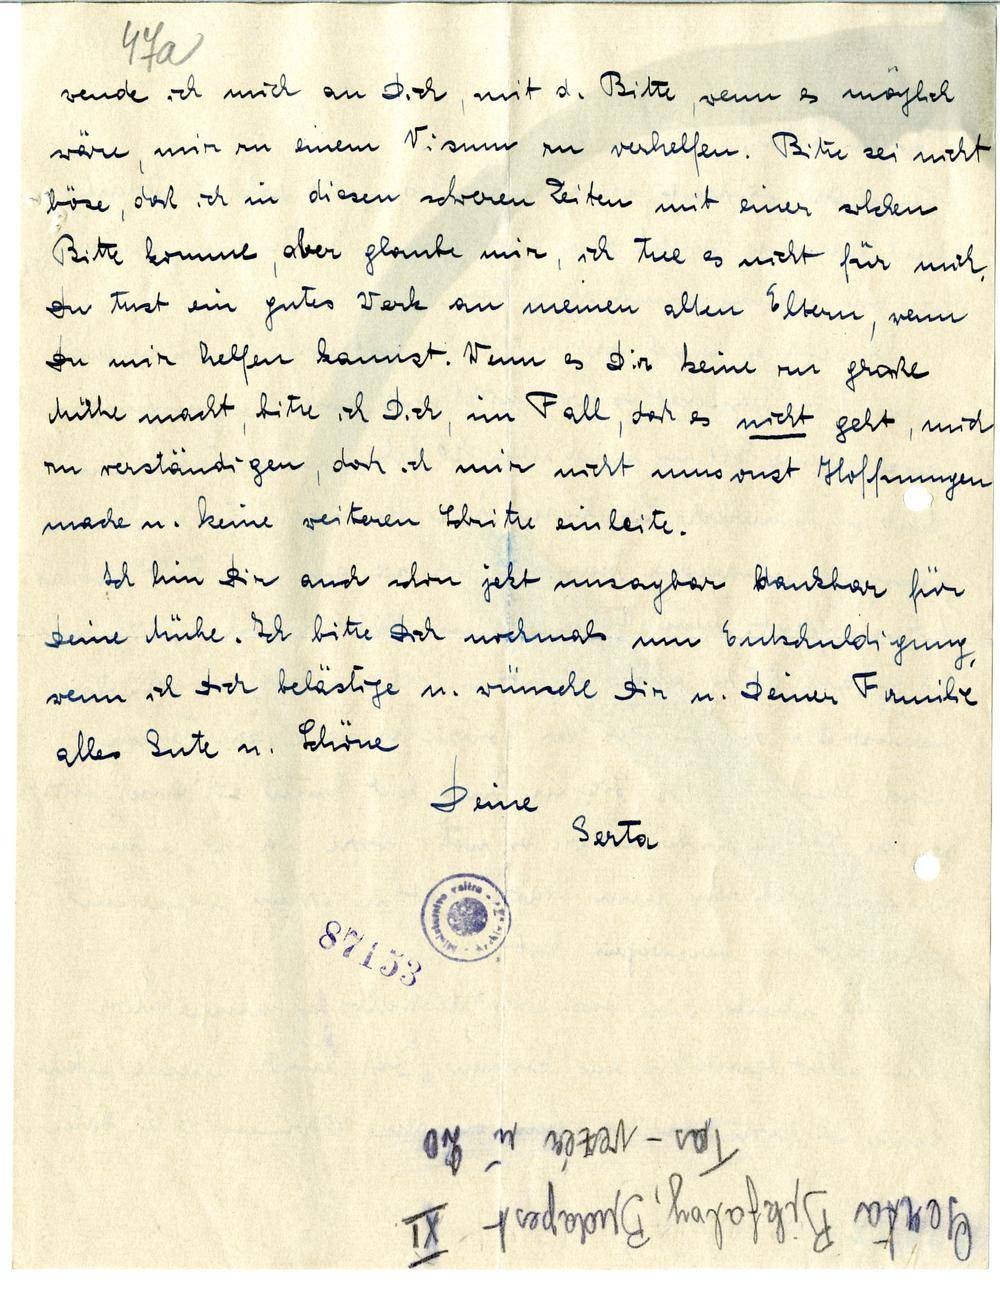 47a
wende ich mich an Dich, mit d. Bitte, wenn es möglich
wäre, mir zu einem Visum zu verhelfen. Bitte sei nicht
böse, daß ich in diesen schweren Zeiten mit einer solchen
Bitte komme, aber glaube mir, ich tue es nicht für mich.
Du tust ein gutes Werk an meinen alten Eltern, wenn
Du mir helfen kannst. Wenn es Dir keine zu große
Mühe macht, bitte ich Dich, im Fall, daß es nicht geht, mich
zu verständigen, daß ich mir nicht umsonst Hoffnungen
mache u. keine weiteren Schritte einleite.
Ich bin Dir auch schon jetzt unsagbar dankbar für
Deine Mühe. Ich bitte Dich nochmals um Entschuldigung,
wenn ich Dich belästige u. wünsche Dir u. Deiner Familie
alles Gute u. Schöne
Deine
Gerta
87153
Gerta Bikfalvy, Budapest XI
Tas-vezér u 20